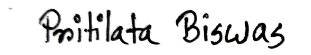 Pritilata Biswas